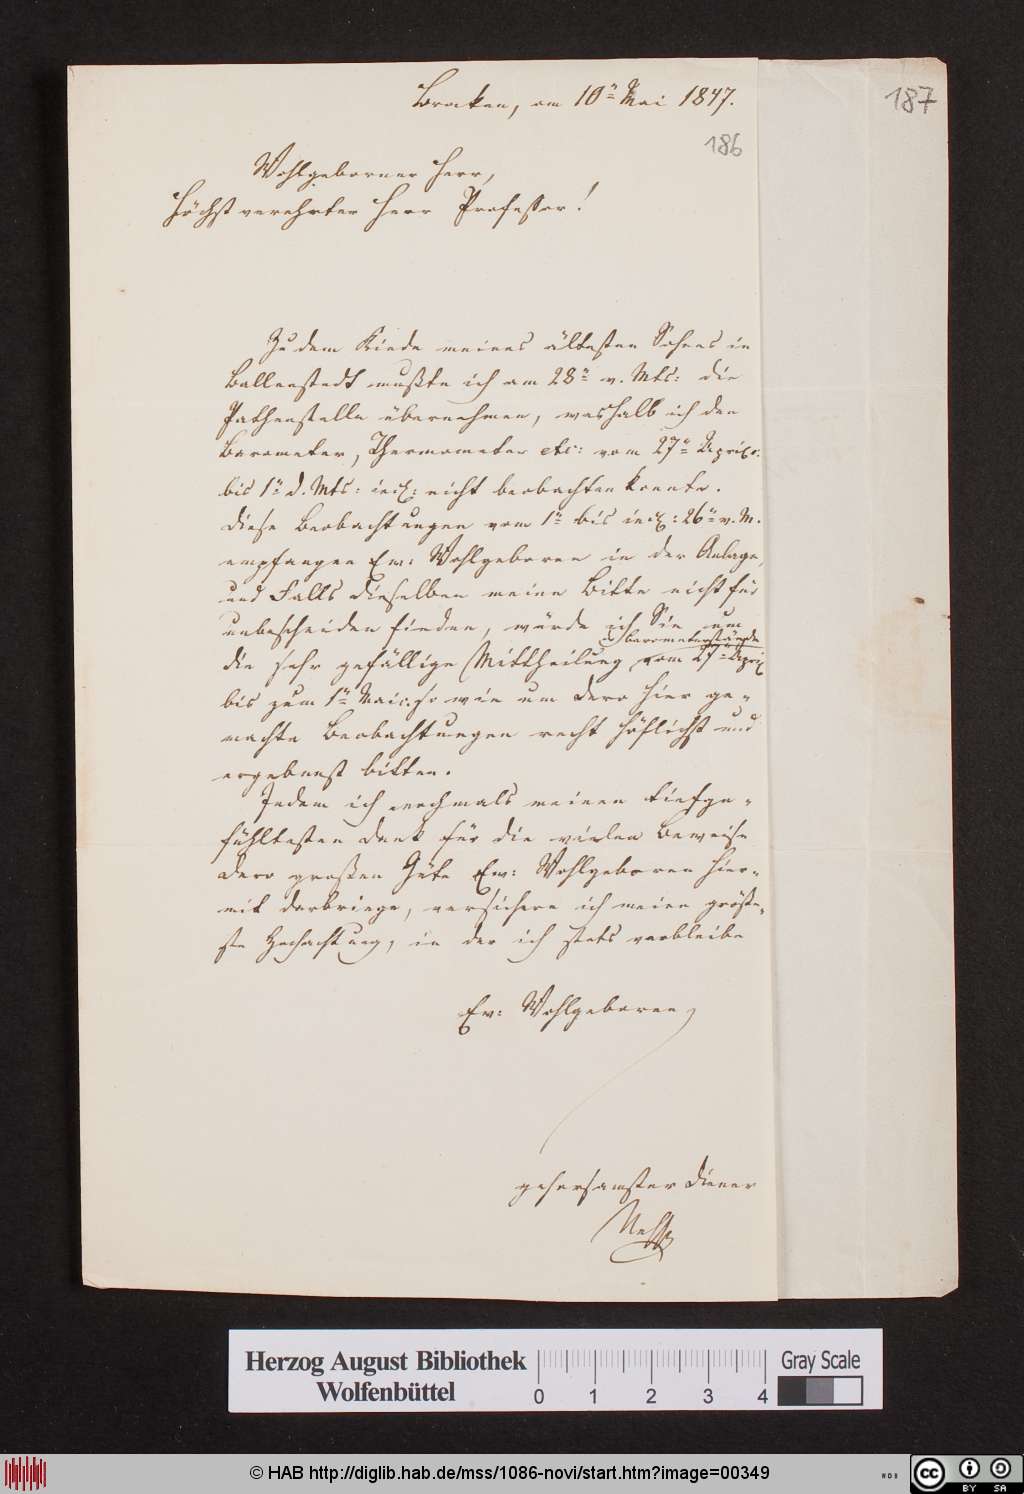 Brocken, am 10ⁿ Mai 1847.
187
186
Wohlgeborner Herr,
Höchst verehrter Herr Professor!
Zu dem Kinde meines ältesten Sohnes in
Ballenstedt mußte ich am 28ⁿ v. Mts: die
Pathenstelle übernehmen, weshalb ich den
Barometer, Thermometer etc: vom 27ⁿ April
bis 1ⁿ d. Mts: incl: nicht beobachten konnte.
Diese Beobachtungen vom 1ⁿ bis incl: 26ⁿ v. M.
empfangen Ew: Wohlgeboren in der Anlage,
und Falls dieselben meine Bitte nicht für
unbescheiden finden, würde ich Sie um
Barometerstände
die sehr gefällige Mittheilung vom 27ⁿ April
bis zum 1ⁿ Mai so wie um dero hier ge-
machte Beobachtungen recht höflichst und
ergebenst bitten.
Indem ich nochmals meinen tiefge-
fühltesten Dank für die vielen Beweise
dero großen Güte Ew: Wohlgeboren hier-
mit darbringe, versichere ich meine größe-
ste Hochachtung, in der ich stets verbleibe
Ew: Wohlgeboren
gehorsamster Diener
Nesse
Herzog August Bibliothek
Wolfenbüttel
0 1 2 3 4
Gray Scale
© HAB http://diglib.hab.de/mss/1086-novi/start.htm?image=00349
WDB
cc BY SA